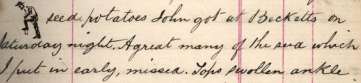 seed potatoes John got at Becketts on
Saturday night. A great many of the seed which
I put in early, missed. Tops swollen ankle